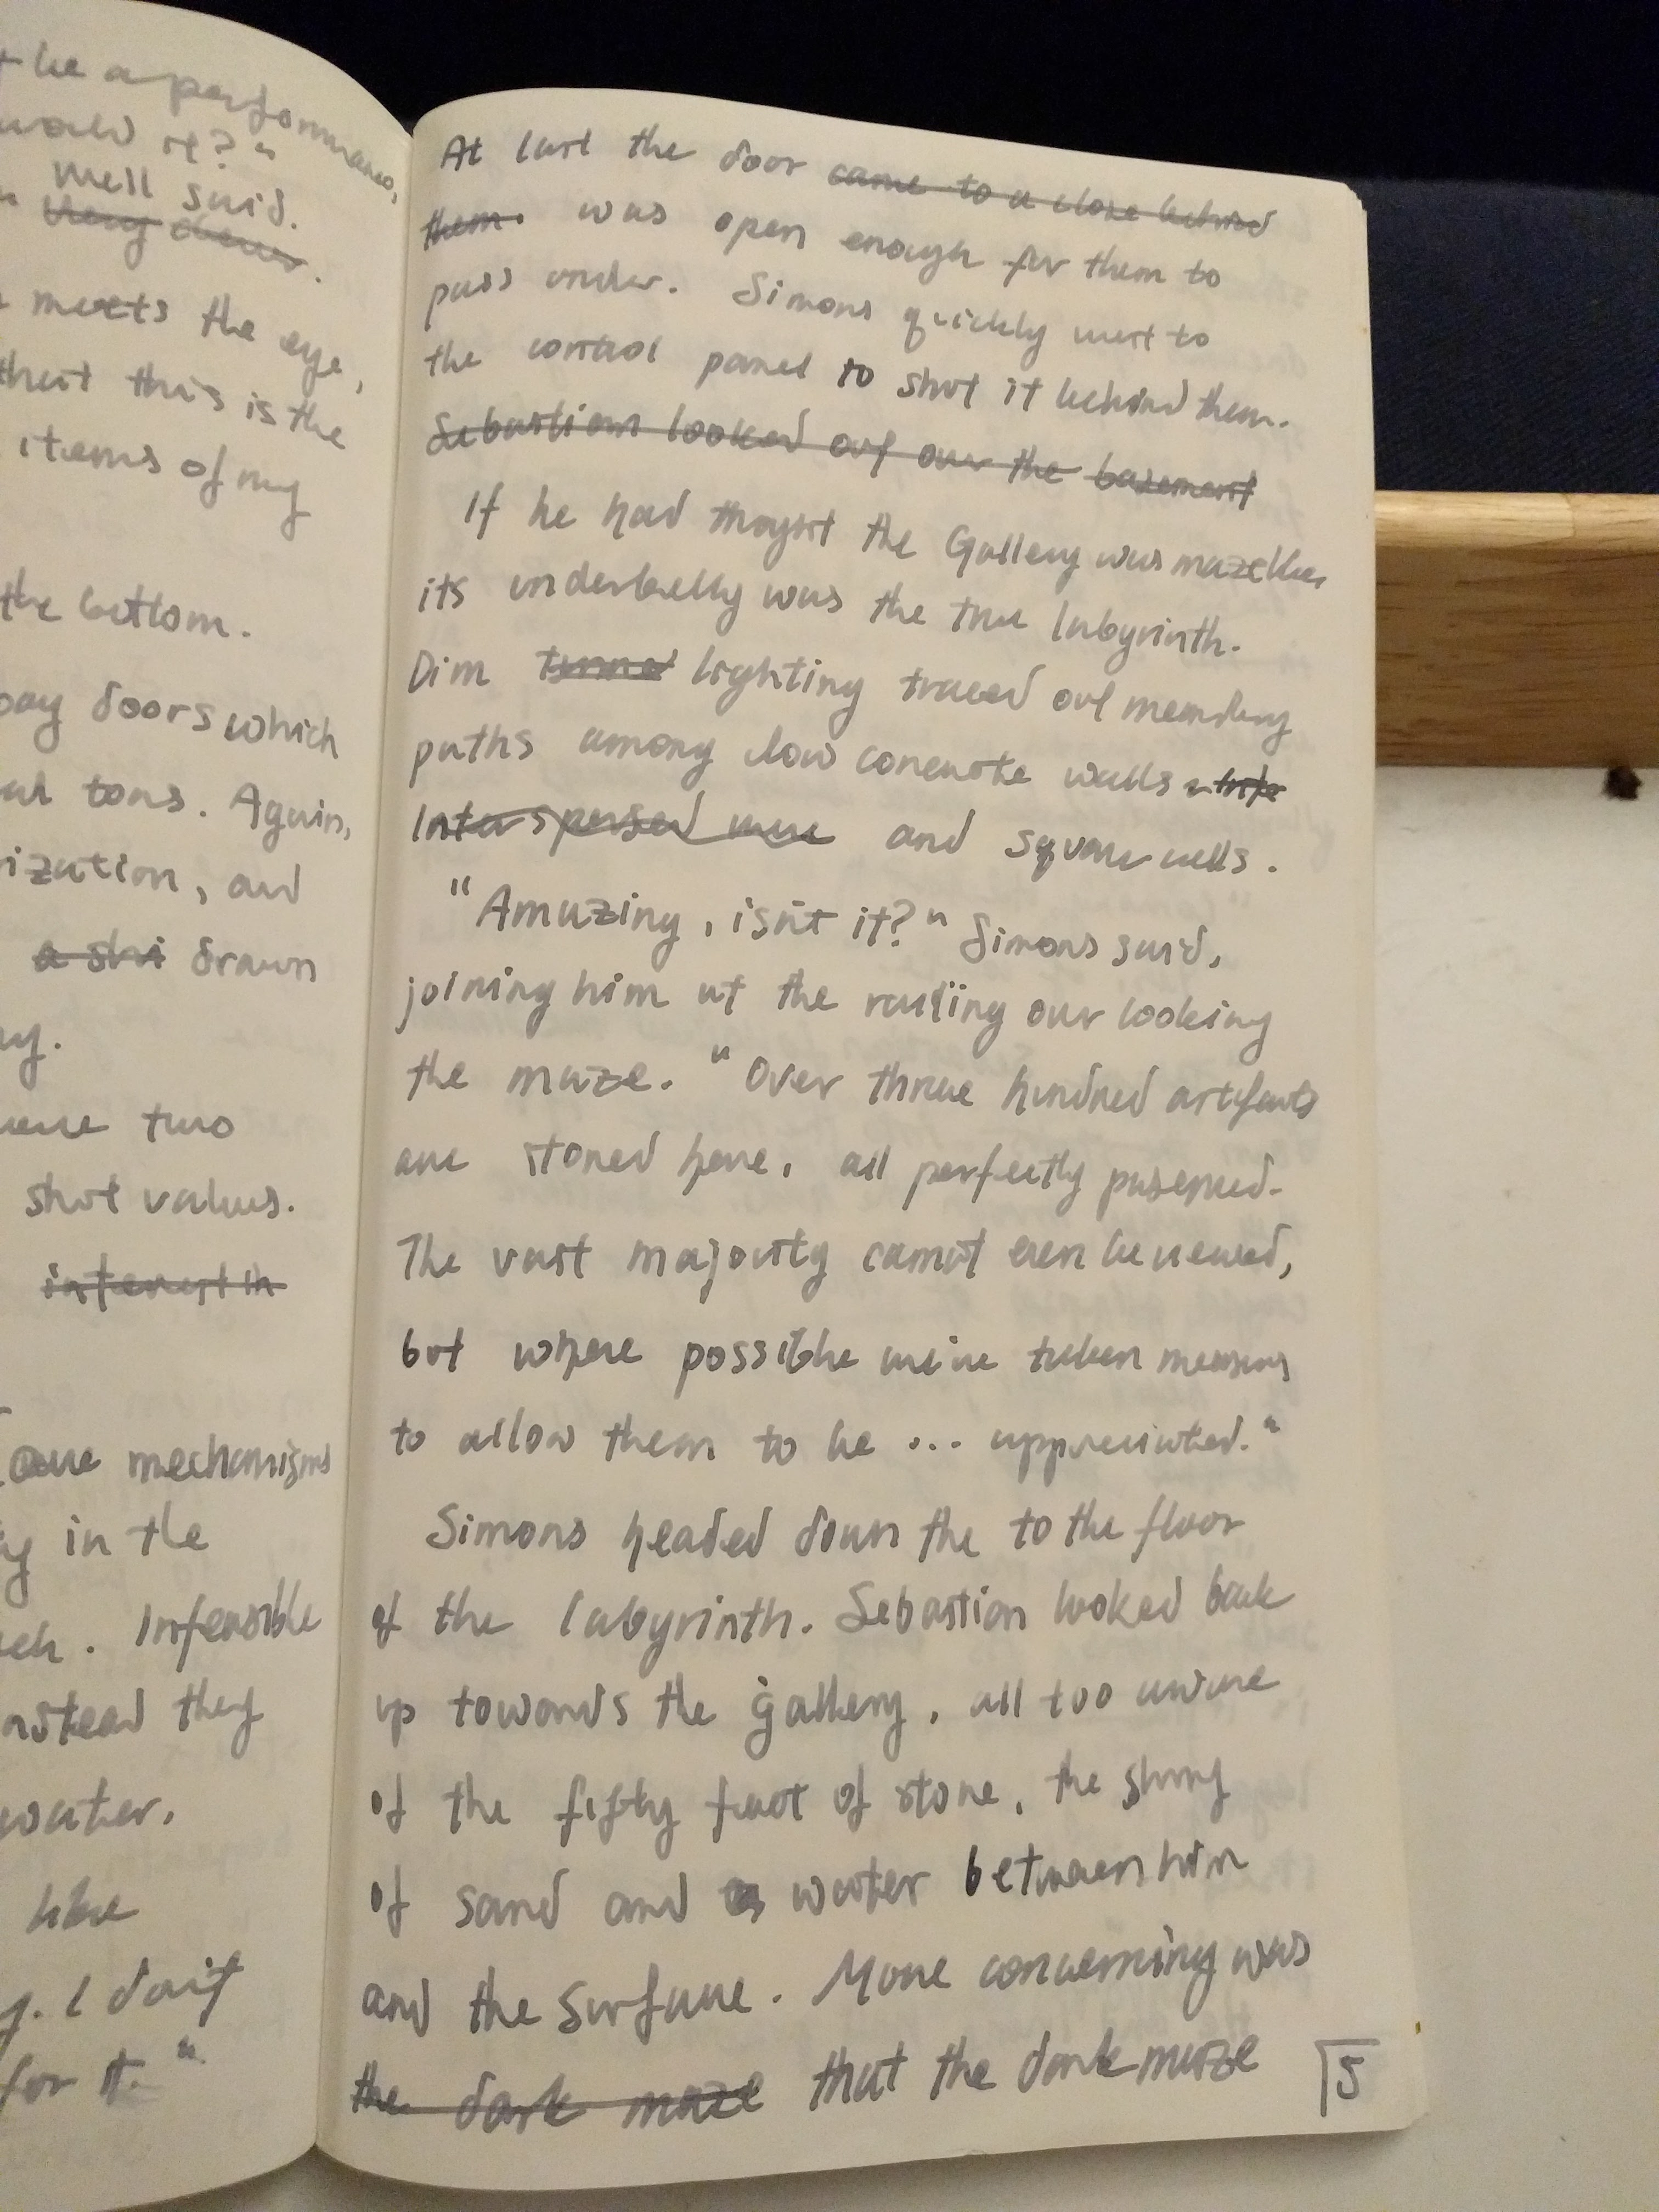 be a performance,
would it?"
well said.
very clever.
meets the eye,
that this is the
items of my
the bottom.
bay doors which
tons. Again,
and
a shi drawn
two
shut values.
interest in
mechanisms
in the
Infeasible
they
water.
like
I don't
for it."
At last the door came to a close behind
them. was open enough for them to
pass under. Simons quickly went to
the control panel to shut it behind them.
Sebastian looked out over the basement
If he had thought the Gallery was mazelike,
its underbelly was the true labyrinth.
Dim tunnel lighting traced out meandering
paths among low concrete walls while
Interspersed were and square cells.
"Amazing, isn't it?" Simons said,
joining him at the railing over looking
the maze. "Over three hundred artifacts
are stored here, all perfectly preserved.
The vast majority cannot even be viewed,
but where possible we've taken measures
to allow them to be ... appreciated."
Simons headed down the to the floor
of the labyrinth. Sebastian looked back
up towards the gallery, all too aware
of the fifty feet of stone, the slurry
of sand and water between him
and the surface. More concerning was
the dark maze that the dark maze
5